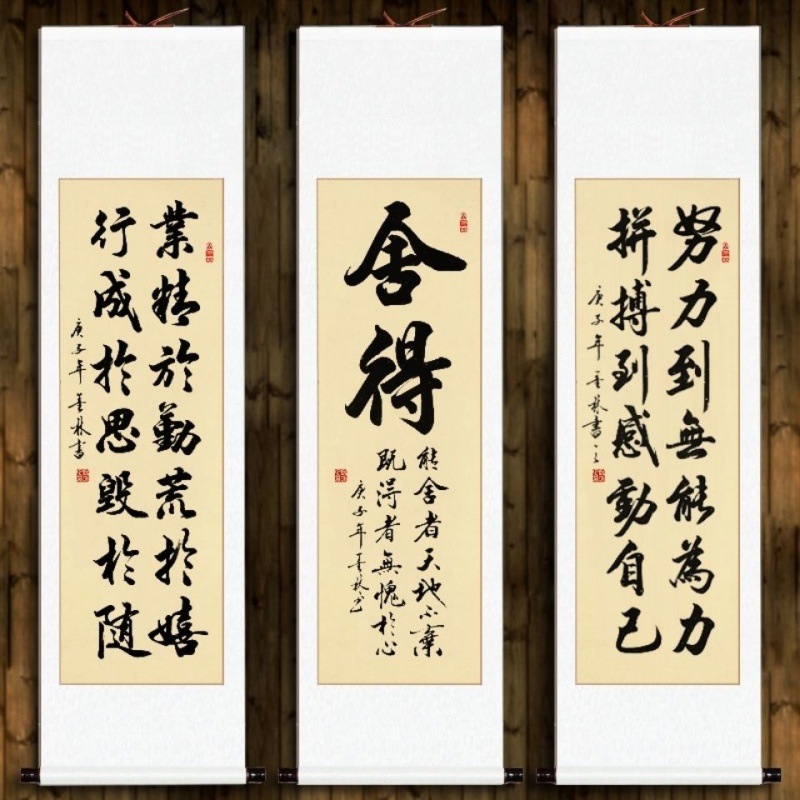 業精於勤荒於嬉
行成於思毀於随
庚子年墨林書
舍得
能舍者天地不棄
既得者無愧於心
庚子年墨林书
努力到無能為力
拼搏到感動自己
庚子年墨林書之